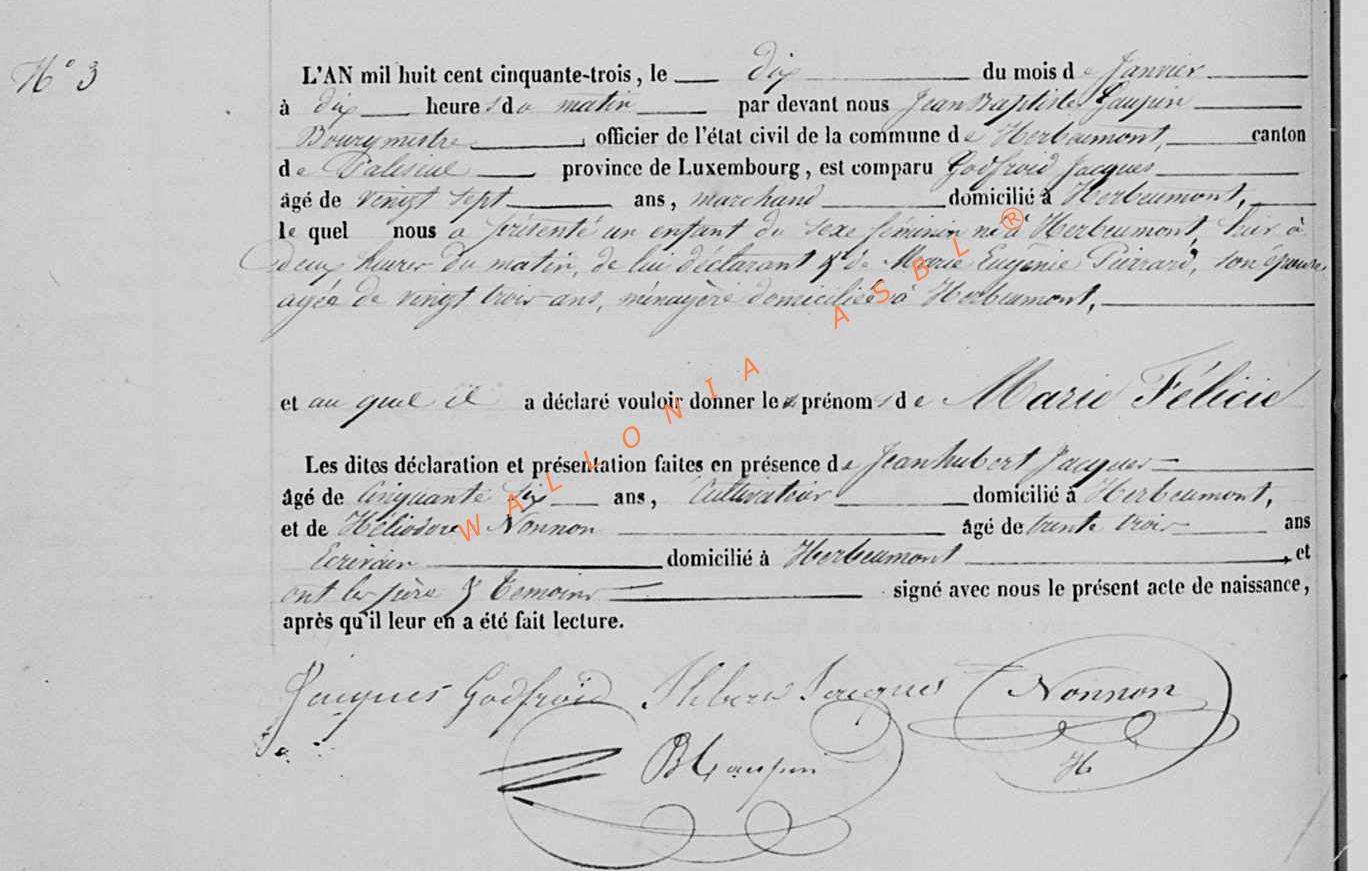 N° 3
L'AN mil huit cent cinquante-trois, le dix du mois de Janvier
à dix heures du matin par devant nous Jean Baptiste Gaupin
Bourgmestre, officier de l'état civil de la commune de Herbeumont, canton
de Paliseul province de Luxembourg, est comparu Godfroid Jacques
âgé de vingt sept ans, marchand domicilié à Herbeumont,
le quel nous a présenté un enfant du sexe féminin né à Herbeumont, hier à
deux heures du matin, de lui déclarant & de Marie Eugénie Pierrard, son épouse,
agée de vingt trois ans, ménagère domiciliée à Herbeumont,
et au quel il a déclaré vouloir donner les prénoms de Marie Félicie
Les dites déclaration et présentation faites en présence de Jean hubert Jacques
âgé de Cinquante six ans, Cultivateur domicilié à Herbeumont,
et de Héliodore Nonnon âgé de trente trois ans
Ecrivain domicilié à Herbeumont, et
ont les père & témoins signé avec nous le présent acte de naissance,
après qu'il leur en a été fait lecture.
Jacques Godfroid Jacques Nonnon
H
WALLONIA ASBL ®